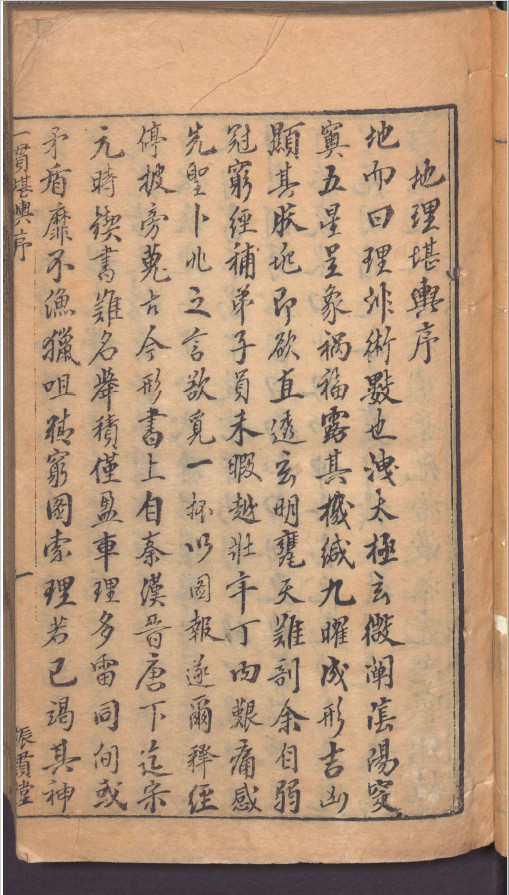 地理堪輿序
地而曰理非術數也洩太極玄微闡陰陽窔
窴五星呈象禍福露其機緘九曜成形吉凶
顯其朕兆即欲直透玄明甕天難剖余自弱
冠窮經補弟子員未暇越壯年丁內艱痛感
先聖卜兆之言欲覓一抔以圖報遂爾釋經
停披旁蒐古今形書上自秦漢晉唐下迄宋
元時鍥書難名舉積僅盈車理多雷同間或
矛盾靡不漁獵咀精窮圖索理若已竭其神
一貫堪輿序
一
振貫堂